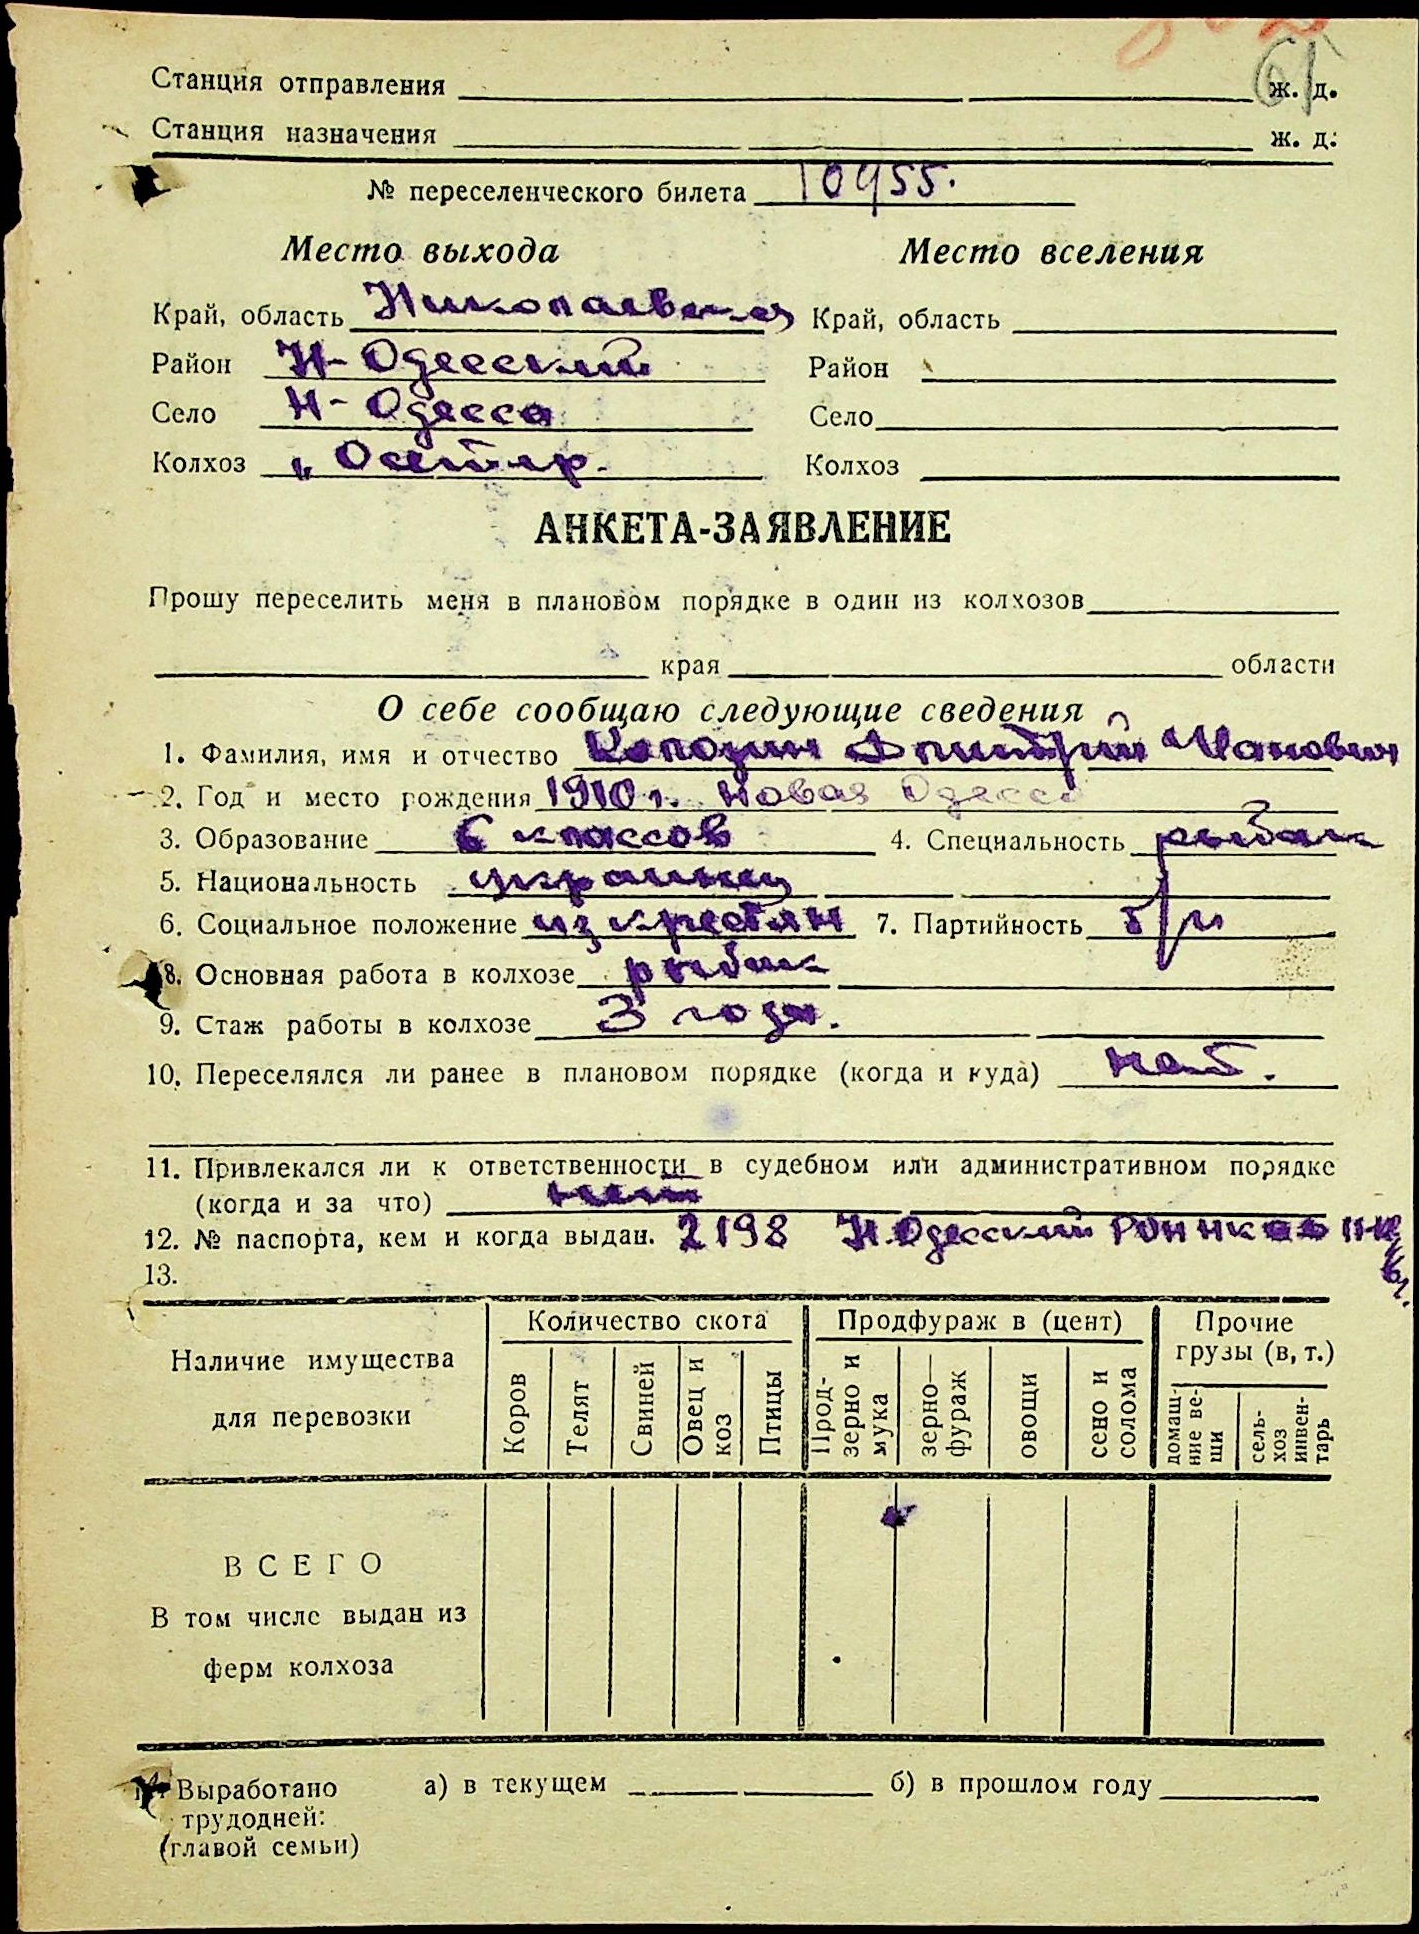 61
Станция отправления ж. д.
Станция назначения ж. д.
№ переселенческого билета 10955.
Место выхода Место вселения
Край, область Николаевская Край, область
Район Н-Одесский Район
Село Н-Одесса Село
Колхоз Колхоз
АНКЕТА-ЗАЯВЛЕНИЕ
Прошу переселить меня в плановом порядке в один из колхозов
края области
О себе сообщаю следующие сведения
1. Фамилия, имя и отчество Дмитрий Иванович
2. Год и место рождения 1910 г. Новая Одесса
3. Образование 6 классов 4. Специальность рыбак
5. Национальность украинец
6. Социальное положение из крестьян 7. Партийность б/п
8. Основная работа в колхозе рыбак
9. Стаж работы в колхозе 3 года.
10. Переселялся ли ранее в плановом порядке (когда и куда) нет.
11. Привлекался ли к ответственности в судебном или административном порядке
(когда и за что) нет
12. № паспорта, кем и когда выдан. 2198 Н.Одесский
13.
Наличие имущества для перевозки Количество скота Продфураж в (цент) Прочие грузы (в, т.)
Коров Телят Свиней Овец и коз Птицы Прод-зерно и мука зерно—фураж овощи сено и солома домаш-ние ве-щи сель-хоз инвен-тарь
ВСЕГО
В том числе выдан из
ферм колхоза
14. Выработано а) в текущем б) в прошлом году
трудодней:
(главой семьи)